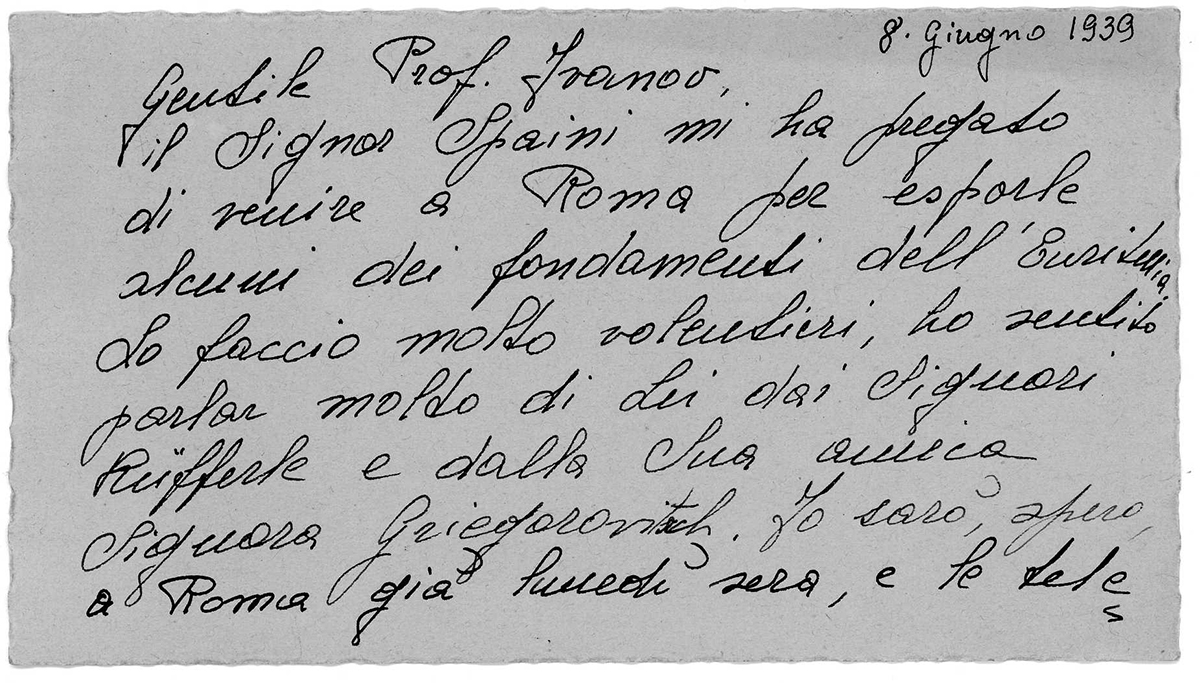 8. Giugno 1939
Gentile Prof. Ivanov,
il Signor Spaini mi ha pregato
di venire a Roma per esporle
alcuni dei fondamenti dell'Euritmia.
Lo faccio molto volentieri, ho sentito
parlar molto di Lei dai Signori
Rüfferle e dalla Sua amica
Signora Griegorovitsch. Io sarò, spero,
a Roma già lunedì sera, e le tele